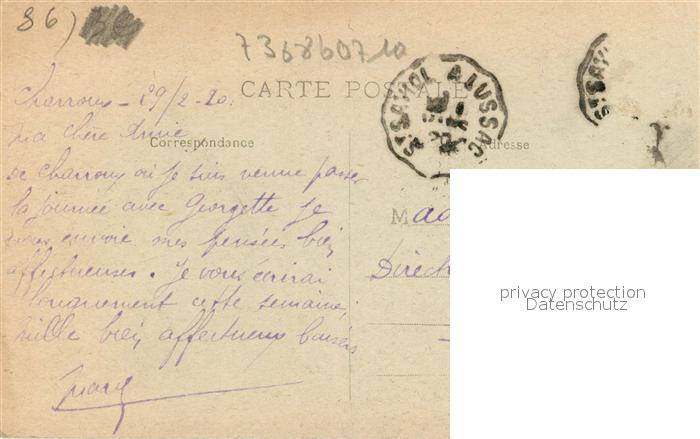 86)
7368607 10
CARTE POSTALE
ST SAVIOL A LUSSAC
ST SAVI
Charroux - 29/2-20.
Ma chère Amie
Correspondance
Adresse
De Charroux où je suis venue passer
la journée avec Georgette je
vous envoie mes pensées bien
affectueuses. Je vous écrirai
longuement cette semaine,
mille bien affectueux baisers
Mad
Direct
privacy protection
Datenschutz